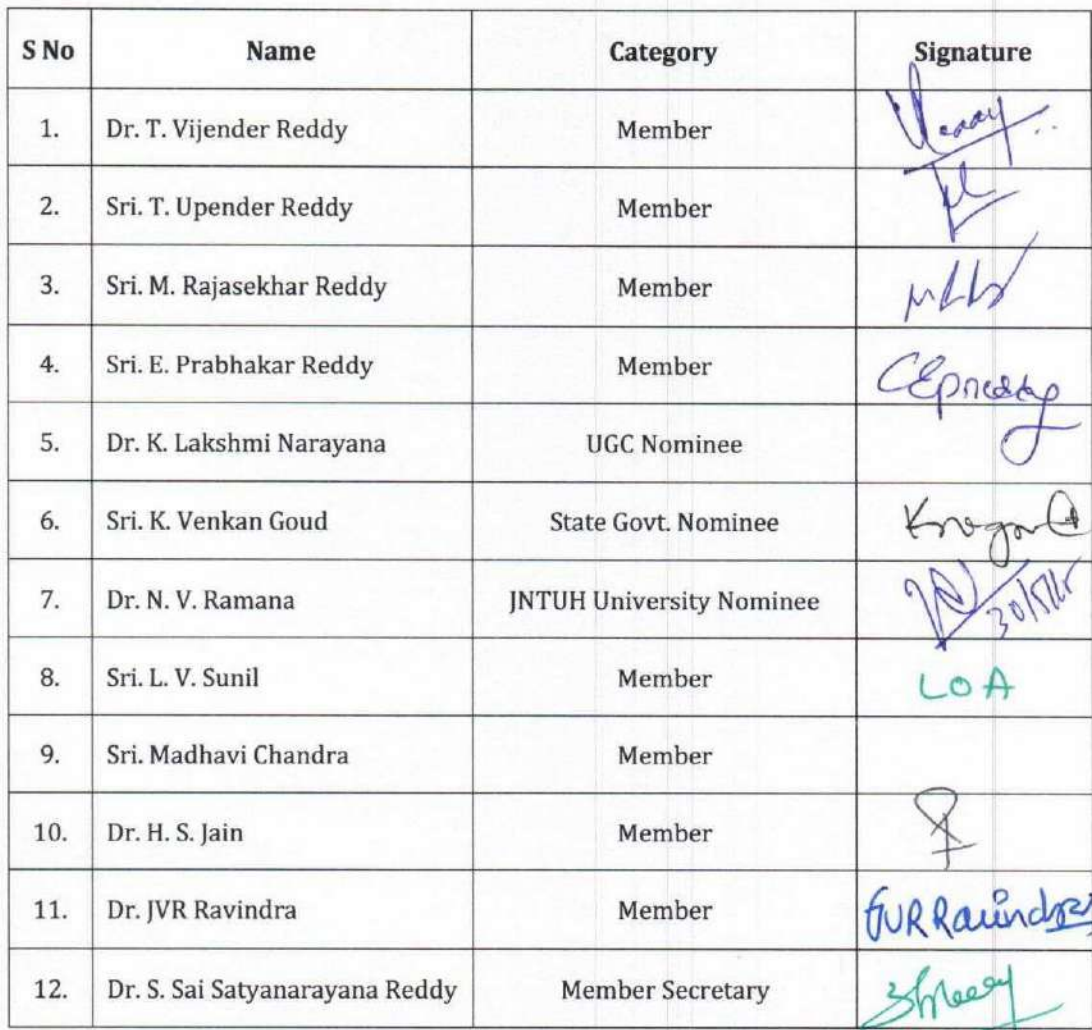 S No Name Category Signature
1. Dr. T. Vijender Reddy Member
2. Sri. T. Upender Reddy Member
3. Sri. M. Rajasekhar Reddy Member
4. Sri. E. Prabhakar Reddy Member CEpreddy
5. Dr. K. Lakshmi Narayana UGC Nominee
6. Sri. K. Venkan Goud State Govt. Nominee
7. Dr. N. V. Ramana JNTUH University Nominee
8. Sri. L. V. Sunil Member LOA
9. Sri. Madhavi Chandra Member
10. Dr. H. S. Jain Member
11. Dr. JVR Ravindra Member JVR Ravindra
12. Dr. S. Sai Satyanarayana Reddy Member Secretary